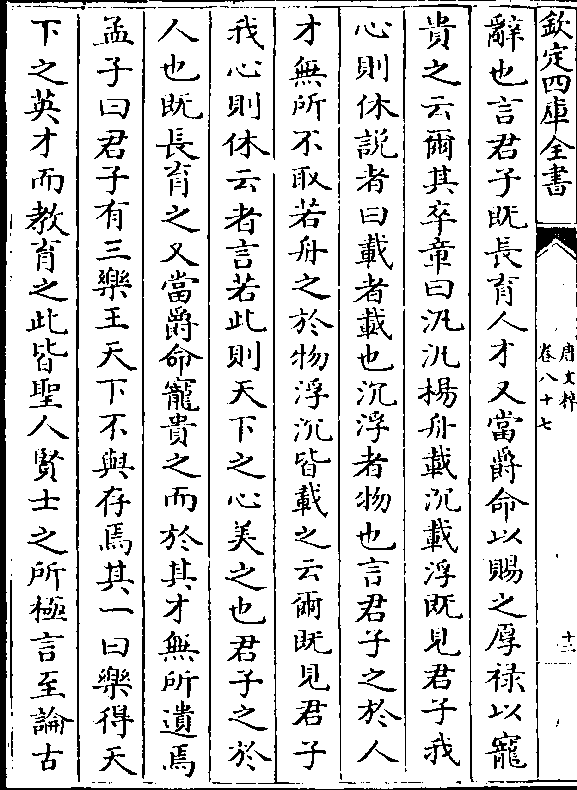 欽定四庫全書
唐文粹
卷八十七
十三
辭也言君子既長育人才又當爵命以賜之厚禄以寵
貴之云爾其卒章曰汎汎楊舟載沉載浮既見君子我
心則休説者曰載者載也沉浮者物也言君子之於人
才無所不取若舟之於物浮沉皆載之云爾既見君子
我心則休云者言若此則天下之心美之也君子之於
人也既長育之又當爵命寵貴之而於其才無所遺焉
孟子曰君子有三樂王天下不與存焉其一曰樂得天
下之英才而教育之此皆聖人賢士之所極言至論古